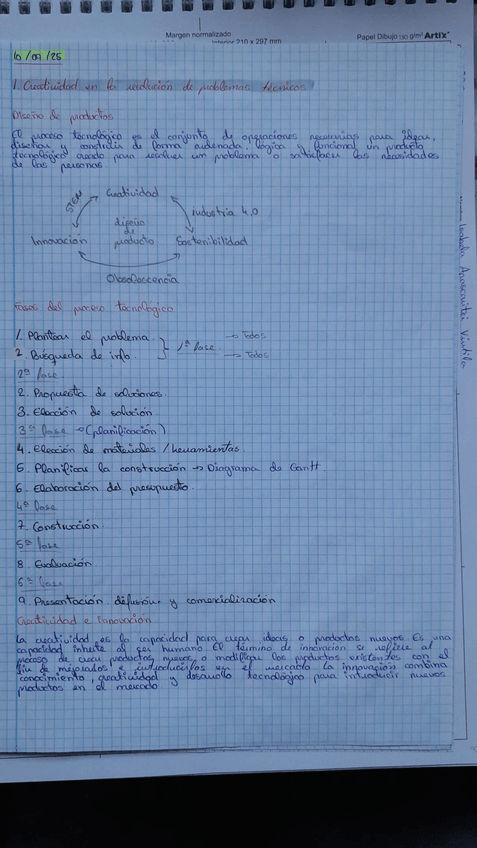 Margen normalizado
Interior 210 x 297 mm
Papel Dibujo 130 g/m² Artix
10/09/25
1. Creatividad en la resolución de problemas técnicos
Diseño de productos
El proceso tecnológico es el conjunto de operaciones necesarias para idear,
diseñar y construir de forma ordenada, lógica y funcional un producto
tecnológico creado para resolver un problema o satisfacer las necesidades
de las personas.
STEM
Creatividad
industria 4.0
diseño
de
producto
Innovación
Sostenibilidad
Obsolescencia
Fases del proceso tecnológico
1. Plantear el problema. → Todos
2. Búsqueda de info. } 1ª fase → Todos
2ª fase
2. Propuesta de soluciones.
3. Elección de solución
3ª fase → (planificación)
4. Elección de materiales / herramientas.
5. Planificar la construcción → Diagrama de Gantt.
6. Elaboración del presupuesto.
4ª fase
7. Construcción.
5ª fase
8. Evaluación.
6ª fase
9. Presentación, difusión y comercialización
Creatividad e Innovación
La creatividad es la capacidad para crear ideas o productos nuevos. Es una
capacidad inherente al ser humano. El término de innovación se refiere al
proceso de crear productos nuevos o modificar los productos existentes con el
fin de mejorarlos e introducirlos en el mercado la innovación combina
conocimiento, creatividad y desarrollo tecnológico para introducir nuevos
productos en el mercado